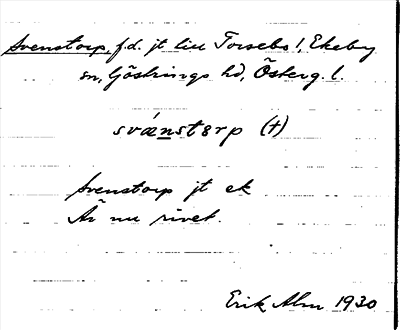 Svenstorp, f.d. jt liu Torsebo!, Ekeby
sn, Göstrings hd, Österg. l.
sváenstɐrp (†)
Svenstorp jt ek
Är nu rivet.
Erik Alm 1930